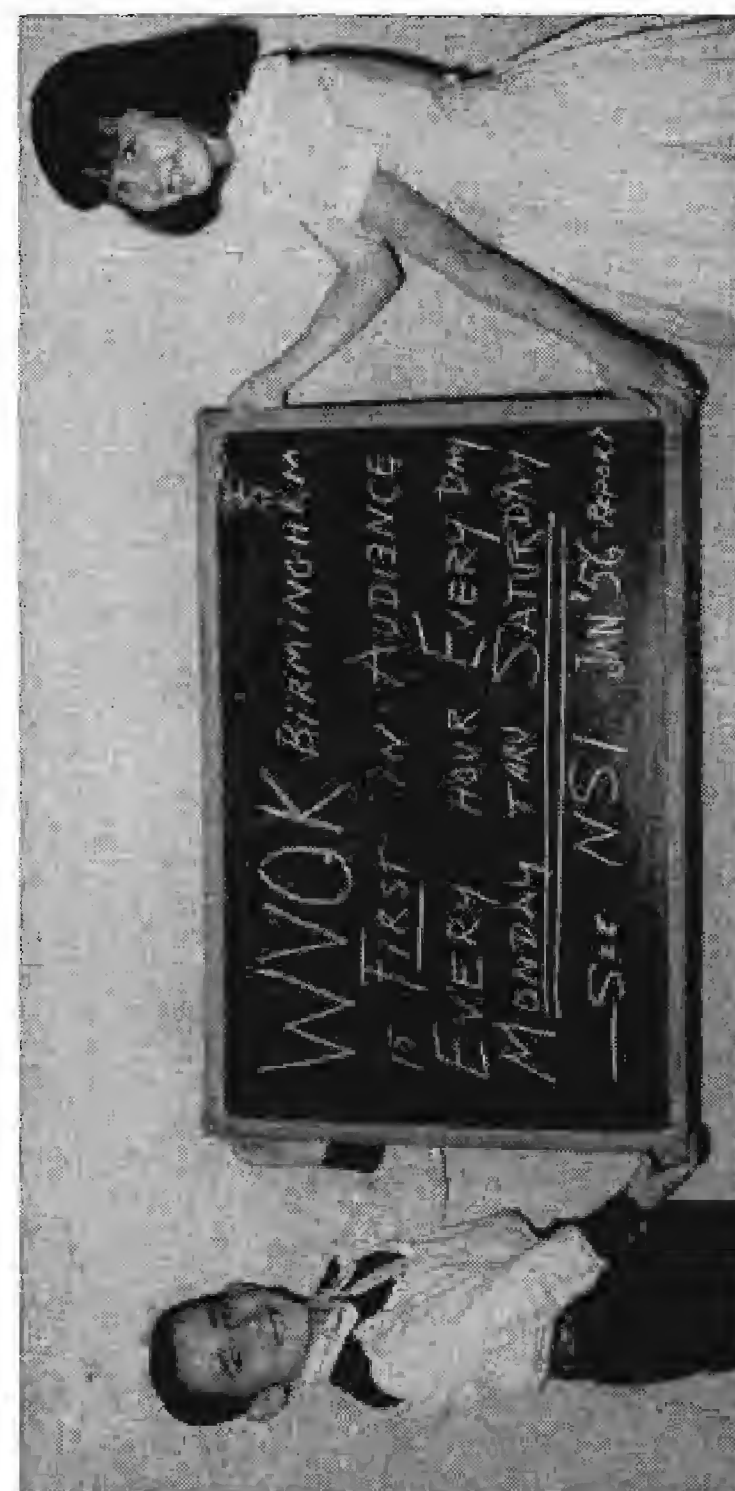 WVOK BIRMINGHAM
IS FIRST IN AUDIENCE
EVERY HOUR EVERY DAY
MONDAY THRU SATURDAY
SEE NSI JAN '56 - REPORT